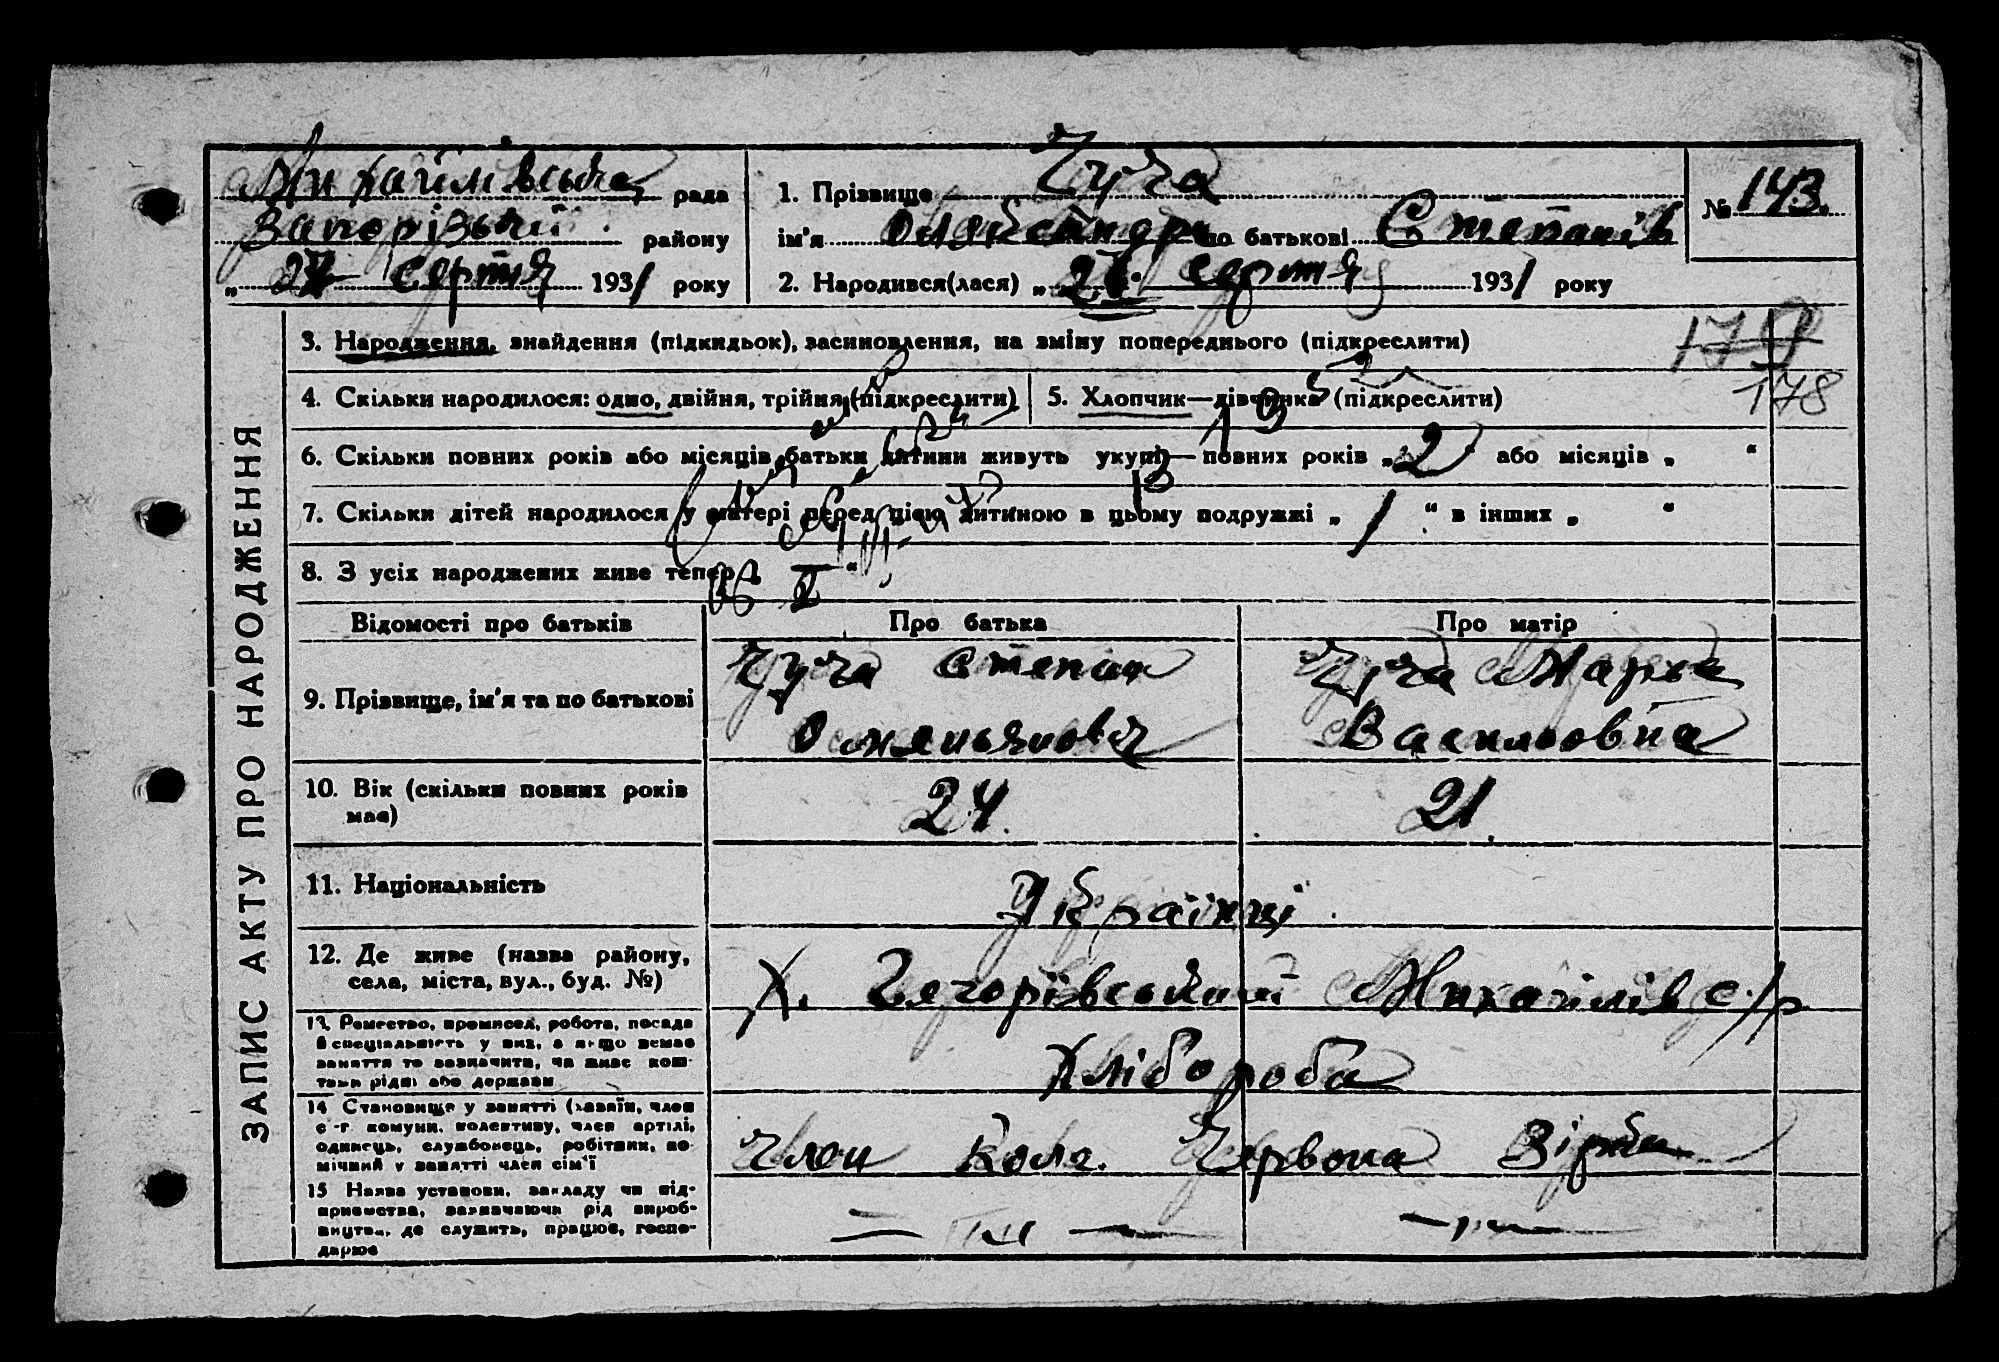 Михайлівська рада
Запорізький району
„ 27 серпня 1931 року
1. Прізвище Чуча
ім'я Олександр по батькові Степанів
2. Народився(лася) „ 21 серпня 1931 року
№ 143.
3. Народження, знайдення (підкидьок), засиновлення, на зміну попереднього (підкреслити)
179
4. Скільки народилося: одно, двійня, трійня (підкреслити)
5. Хлопчик—дівчинка (підкреслити)
178
6. Скільки повних років або місяців батьки дитини живуть укупі— повних років „ 2 " або місяців „ "
7. Скільки дітей народилося у матері перед цією дитиною в цьому подружжі „ 1 " в інших „ "
8. З усіх народжених живе тепер „ "
ЗАПИС АКТУ ПРО НАРОДЖЕННЯ
Відомості про батьків
Про батька
Про матір
9. Прізвище, ім'я та по батькові
Чуча Степан
Омельянович
Чуча Марія
Васильовна
10. Вік (скільки повних років
має)
24.
21.
11. Національність
Українці.
12. Де живе (назва району,
села, міста, вул., буд. №)
Х. Михайлів с/р
13. Ремество, промисел, робота, посада
й спеціальність у них, а якщо немає
заняття то зазначити, чи живе кош-
тами рідні або держави
Хлібороба
14 Становище у занятті (хазяїн, член
с.-г. комуни, колективу, член артілі,
одинець, службовець, робітник, по-
мічний у занятті член сім'ї
Член Колг. Червона Зірка
15 Назва установи, закладу чи під-
приємства, зазначаючи рід вироб-
ництва, де служить, працює, госпо-
дарює